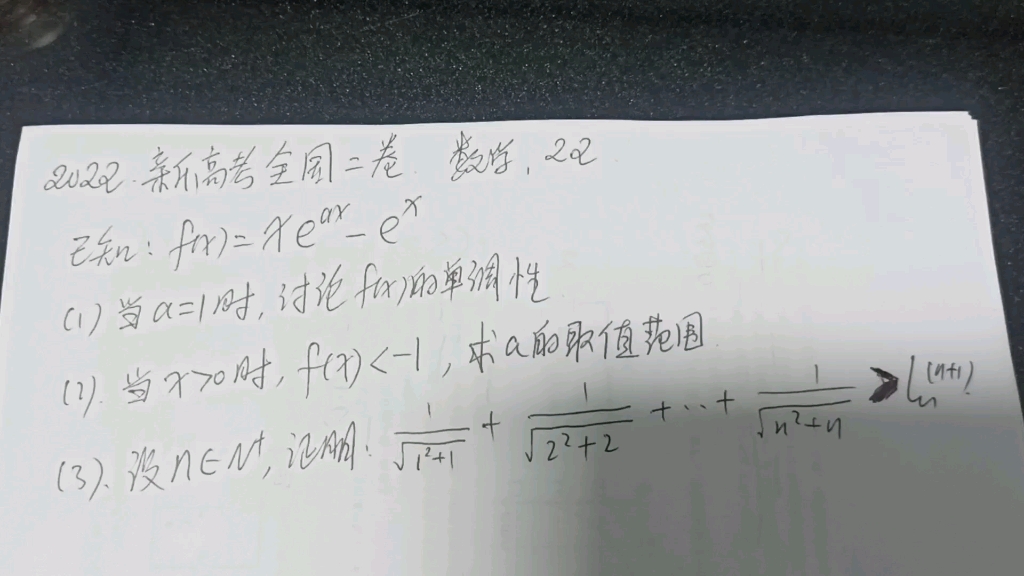 2022.新高考全国二卷 数学,22
已知:f(x)=xe^{ax}-e^x
(1)当a=1时,讨论f(x)的单调性
(2).当x>0时,f(x)<-1,求a的取值范围
(3).设n∈N⁺,证明:\frac{1}{\sqrt{1^2+1}}+\frac{1}{\sqrt{2^2+2}}+…+\frac{1}{\sqrt{n^2+n}}>Ln(n+1)